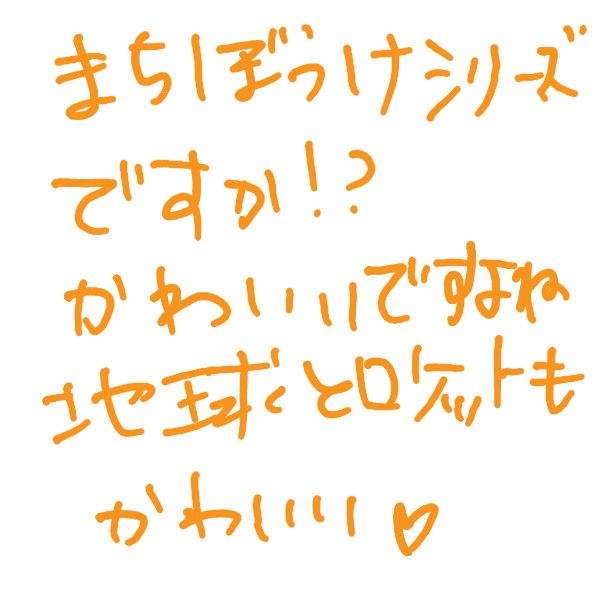 まちぼうけシリーズ
ですか!?
かわいいですよね
地球とロケットも
かわいい♡